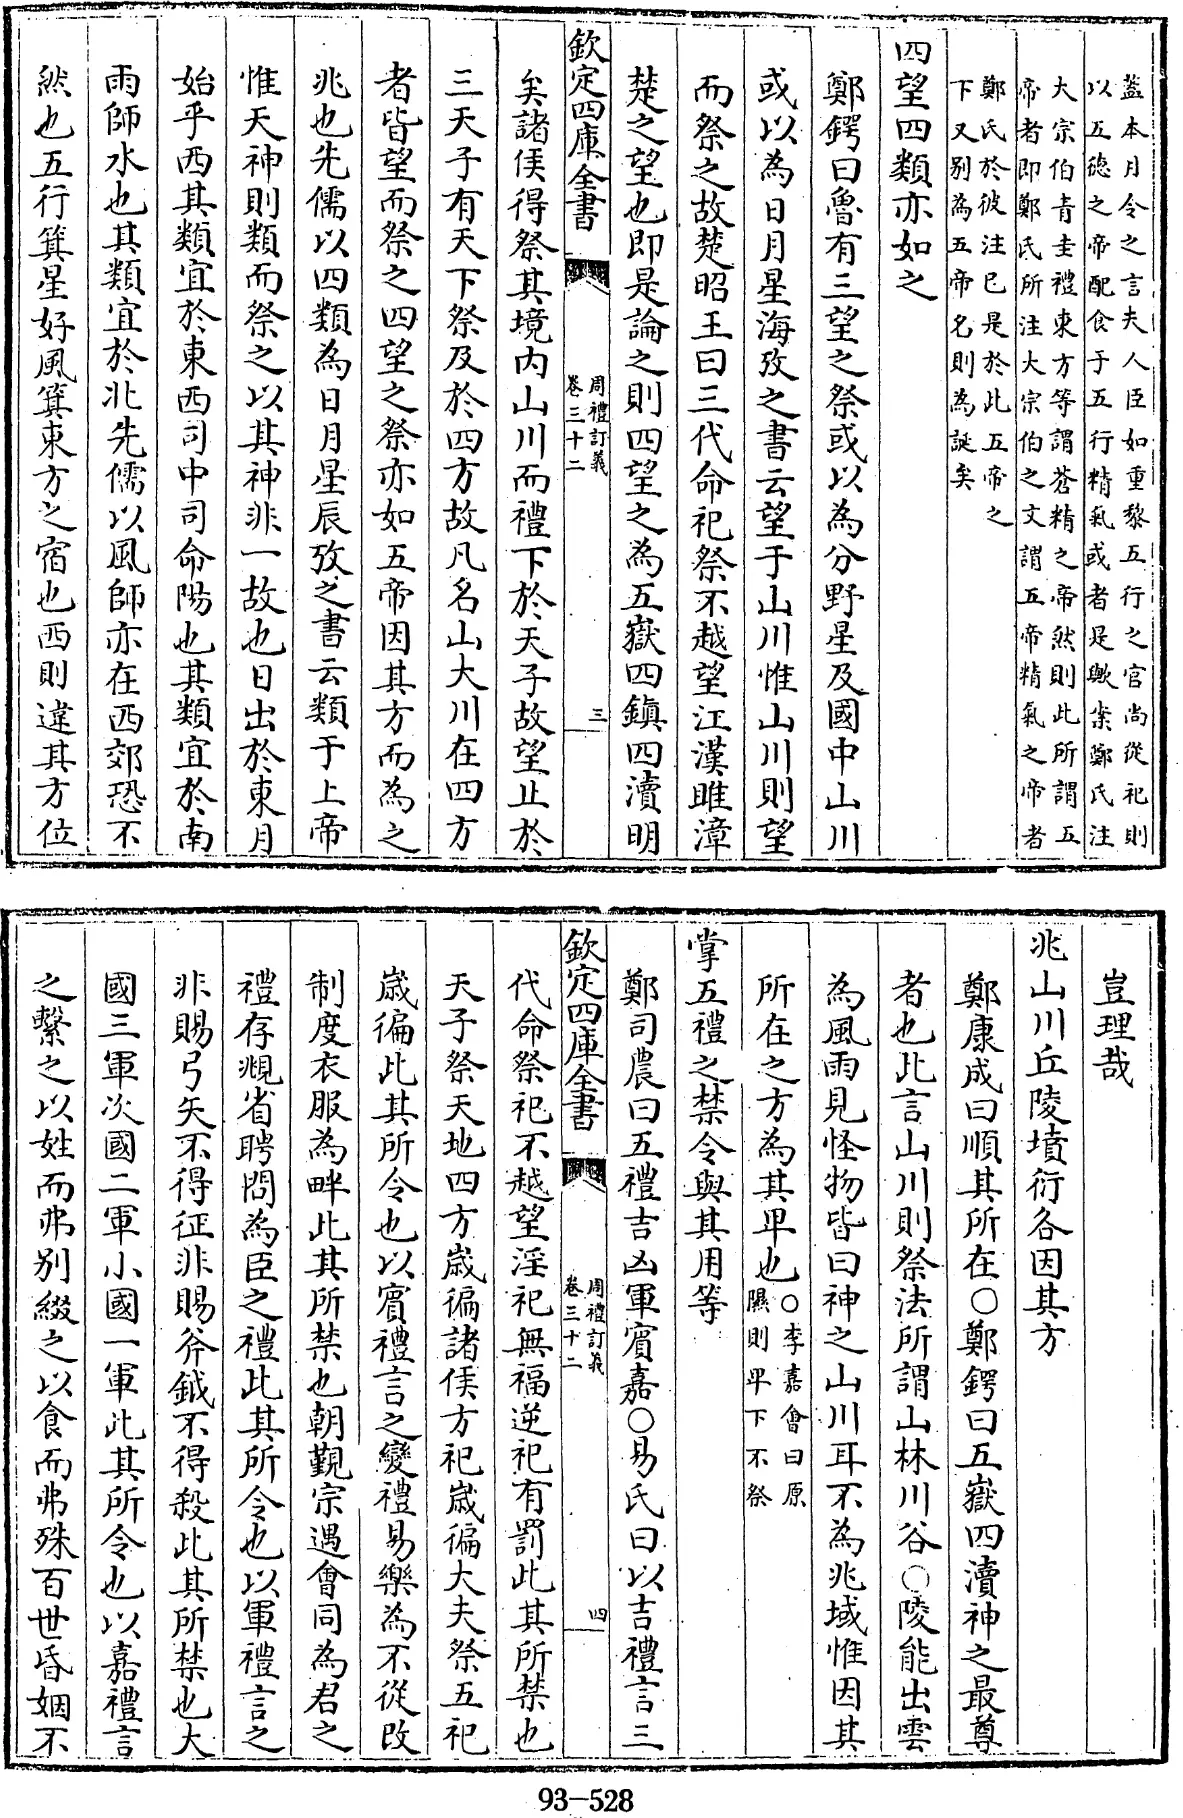 蓋本月令之言夫人臣如重黎五行之官尚從祀則
以五徳之帝配食于五行精氣或者是歟案鄭氏注
大宗伯青圭禮東方等謂蒼精之帝然則此所謂五
帝者即鄭氏所注大宗伯之文謂五帝精氣之帝者
鄭氏於彼注已是於此五帝之
下又别為五帝名則為誕矣
四望四類亦如之
鄭鍔曰魯有三望之祭或以為分野星及國中山川
或以為日月星海攷之書云望于山川惟山川則望
而祭之故楚昭王曰三代命祀祭不越望江漢雎漳
楚之望也即是論之則四望之為五嶽四鎮四瀆明
欽定四庫全書
周禮訂義
卷三十二
三
矣諸侯得祭其境内山川而禮下於天子故望止於
三天子有天下祭及於四方故凡名山大川在四方
者皆望而祭之四望之祭亦如五帝因其方而為之
兆也先儒以四類為日月星辰攷之書云類于上帝
惟天神則類而祭之以其神非一故也日出於東月
始乎西其類宜於東西司中司命陽也其類宜於南
雨師水也其類宜於北先儒以風師亦在西郊恐不
然也五行箕星好風箕東方之宿也西則違其方位
豈理哉
兆山川丘陵墳衍各因其方
鄭康成曰順其所在○鄭鍔曰五嶽四瀆神之最尊
者也此言山川則祭法所謂山林川谷○陵能出雲
為風雨見怪物皆曰神之山川耳不為兆域惟因其
所在之方為其畢也○李嘉會曰原
隰則卑下不祭
掌五禮之禁令與其用等
鄭司農曰五禮吉凶軍賓嘉○易氏曰以吉禮言三
欽定四庫全書
周禮訂義
卷三十二
四
代命祭祀不越望淫祀無福逆祀有罰此其所禁也
天子祭天地四方歳徧諸侯方祀歳徧大夫祭五祀
歳徧此其所令也以賓禮言之變禮易樂為不從改
制度衣服為畔此其所禁也朝覲宗遇會同為君之
禮存覜省聘問為臣之禮此其所令也以軍禮言之
非賜弓矢不得征非賜斧鉞不得殺此其所禁也大
國三軍次國二軍小國一軍此其所令也以嘉禮言
之繫之以姓而弗别綴之以食而弗殊百世昏姻不
93-528